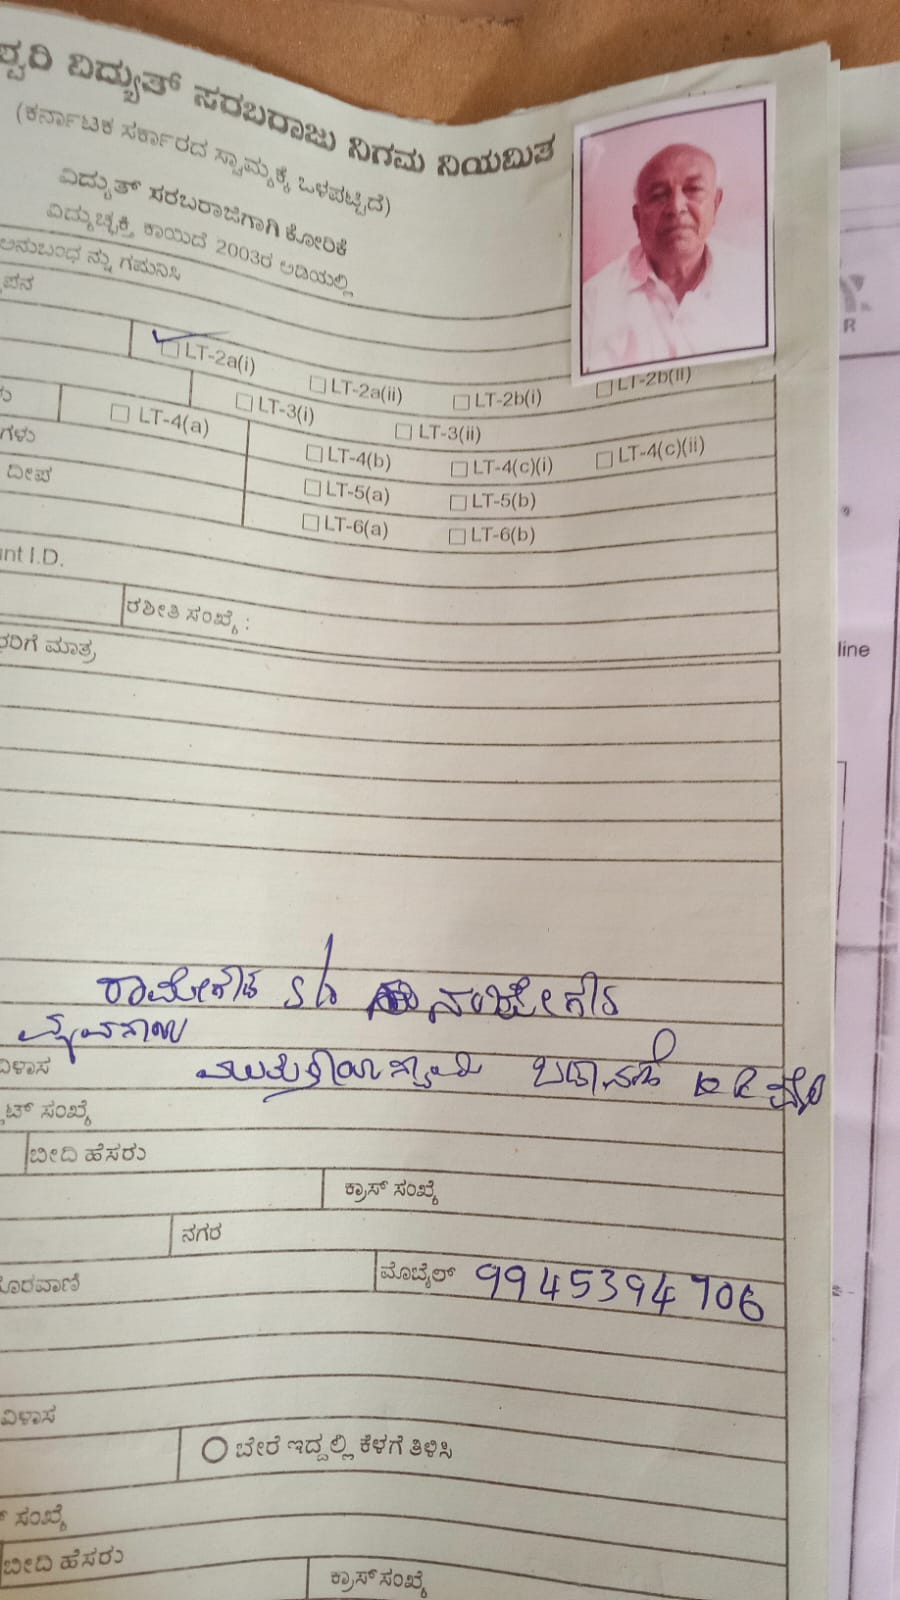 ಶ್ವರಿ ವಿದ್ಯುತ್ ಸರಬರಾಜು ನಿಗಮ ನಿಯಮಿತ
(ಕರ್ನಾಟಕ ಸರ್ಕಾರದ ಸ್ವಾಮ್ಯಕ್ಕೆ ಒಳಪಟ್ಟಿದೆ)
ವಿದ್ಯುತ್ ಸರಬರಾಜಿಗಾಗಿ ಕೋರಿಕೆ
ವಿದ್ಯುಚ್ಛಕ್ತಿ ಕಾಯಿದೆ 2003ರ ಅಡಿಯಲ್ಲಿ
ಅನುಬಂಧ ನ್ನು ಗಮನಿಸಿ
ಪನ
☐ LT-2a(i) ☐ LT-2a(ii) ☐ LT-2b(i) ☐ LT-2b(ii)
☐ LT-3(i) ☐ LT-3(ii)
☐ LT-4(a) ☐ LT-4(b) ☐ LT-4(c)(i) ☐ LT-4(c)(ii)
ಗಳು ☐ LT-5(a) ☐ LT-5(b)
ದೀಪ ☐ LT-6(a) ☐ LT-6(b)
nt I.D.
ರಶೀತಿ ಸಂಖ್ಯೆ :
ರಿಗೆ ಮಾತ್ರ
ರಾಮೇಗೌಡ S/o ನಂಜೇಗೌಡ
ವಿಳಾಸ
ಟ್ ಸಂಖ್ಯೆ
ಬೀದಿ ಹೆಸರು
ಕ್ರಾಸ್ ಸಂಖ್ಯೆ
ನಗರ
ರವಾಣಿ ಮೊಬೈಲ್ 9945394706
ವಿಳಾಸ
ಬೇರೆ ಇದ್ದಲ್ಲಿ ಕೆಳಗೆ ತಿಳಿಸಿ
ಸಂಖ್ಯೆ
ಬೀದಿ ಹೆಸರು
ಕ್ರಾಸ್ ಸಂಖ್ಯೆ
R
line